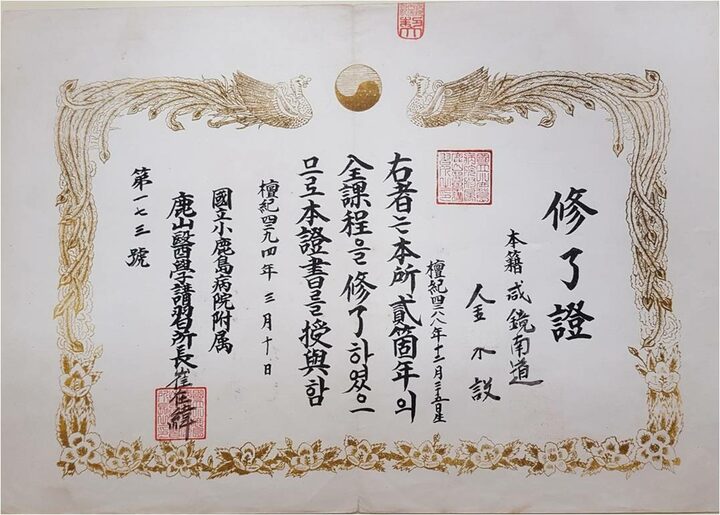 修了證
本籍 咸鏡南道
金
年十二月 日生
右者는本所貳箇年의
全課程을修了하였으
므로本證書를授與함
檀紀四二九四年 三月十日
國立小鹿島病院附属
鹿山醫學講習所長 崔在緯
第一七三號